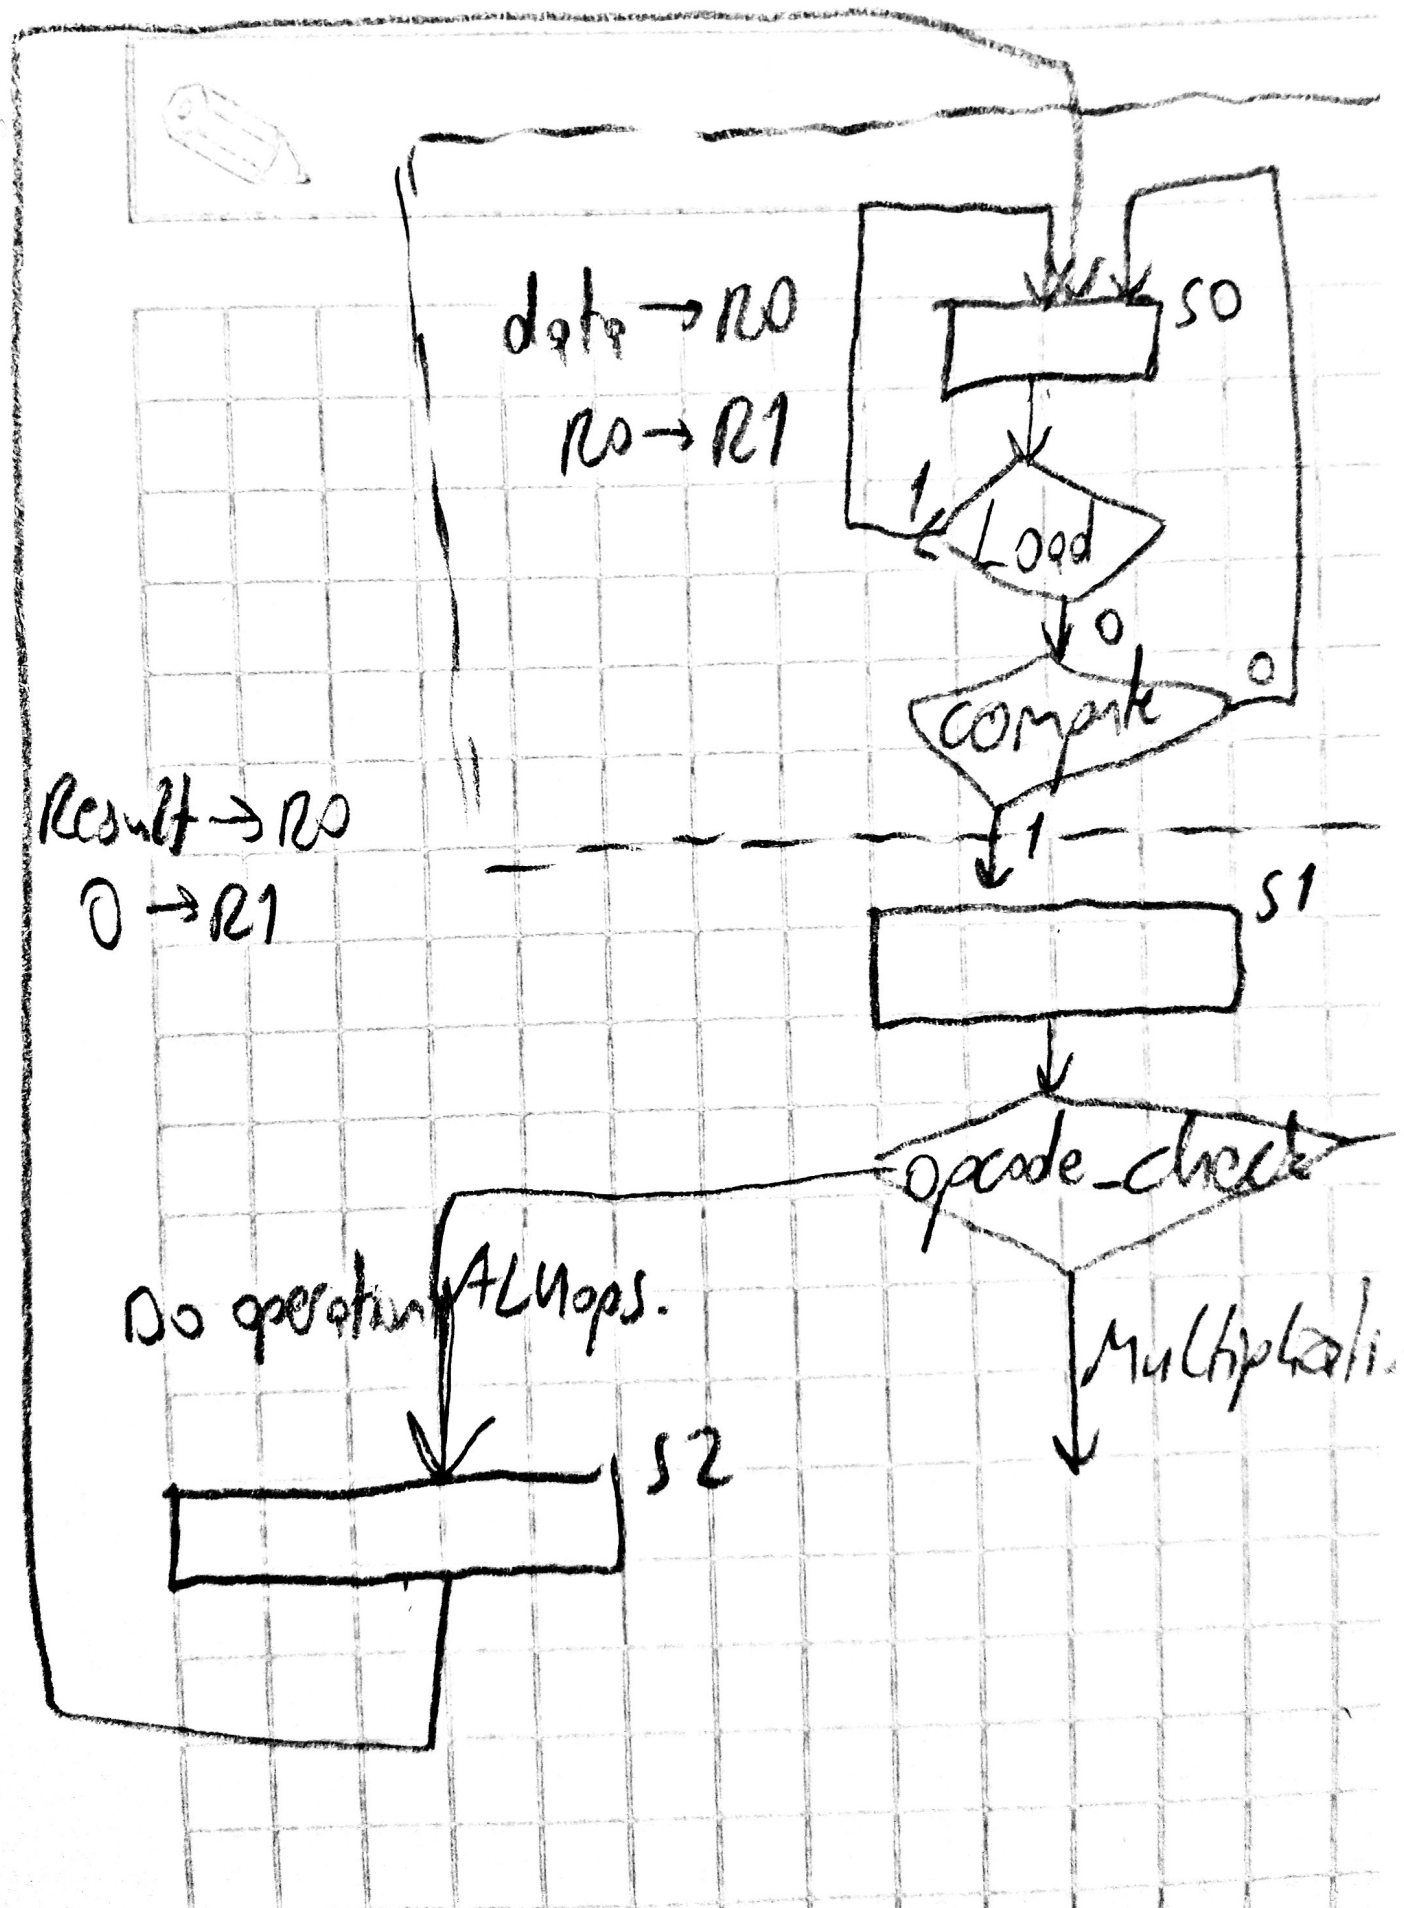 S0
data → R0
R0 → R1
1
Load
0
0
compute
1
Result → R0
0 → R1
S1
opcode_check
Do operation ALUops.
S2